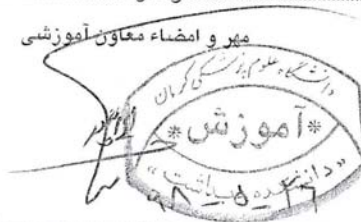 مهر و امضاء معاون آموزشی
دانشگاه علوم پزشکی کرمان
*آموزش*
«دانشکده بهداشت»